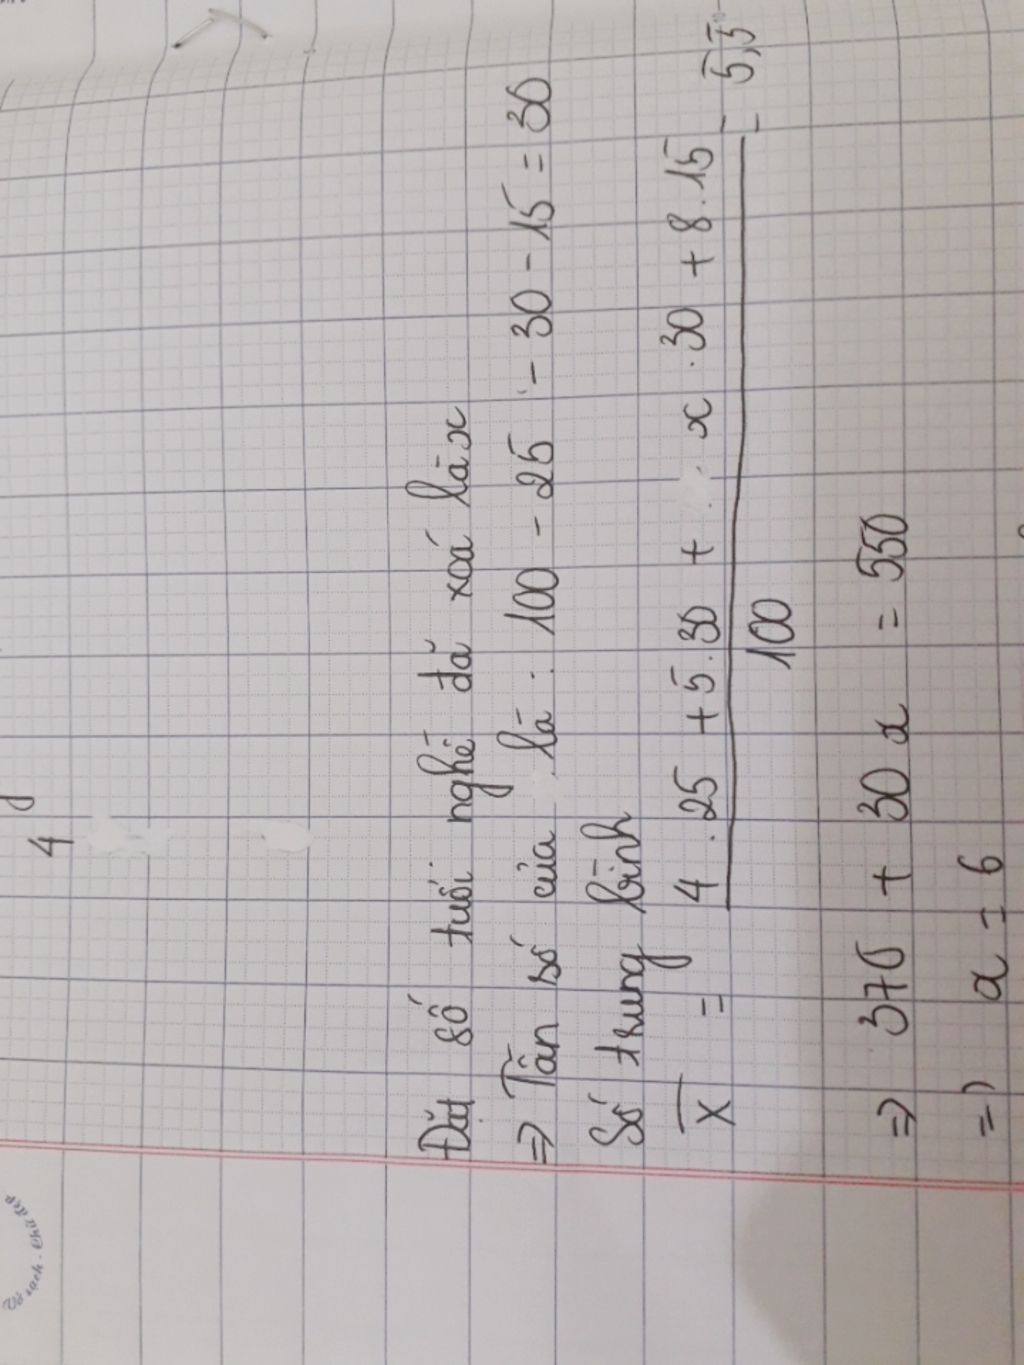 4
Đặt số tuổi nghề đã xoá là x
=> Tần số của là : 100 - 25 - 30 - 15 = 30
Số trung bình
X̄ = 4 . 25 + 5 . 30 + x . 30 + 8 . 15 = 5,5
100
=> 370 + 30 x = 550
=> x = 6
Vở sạch - Chữ đẹp